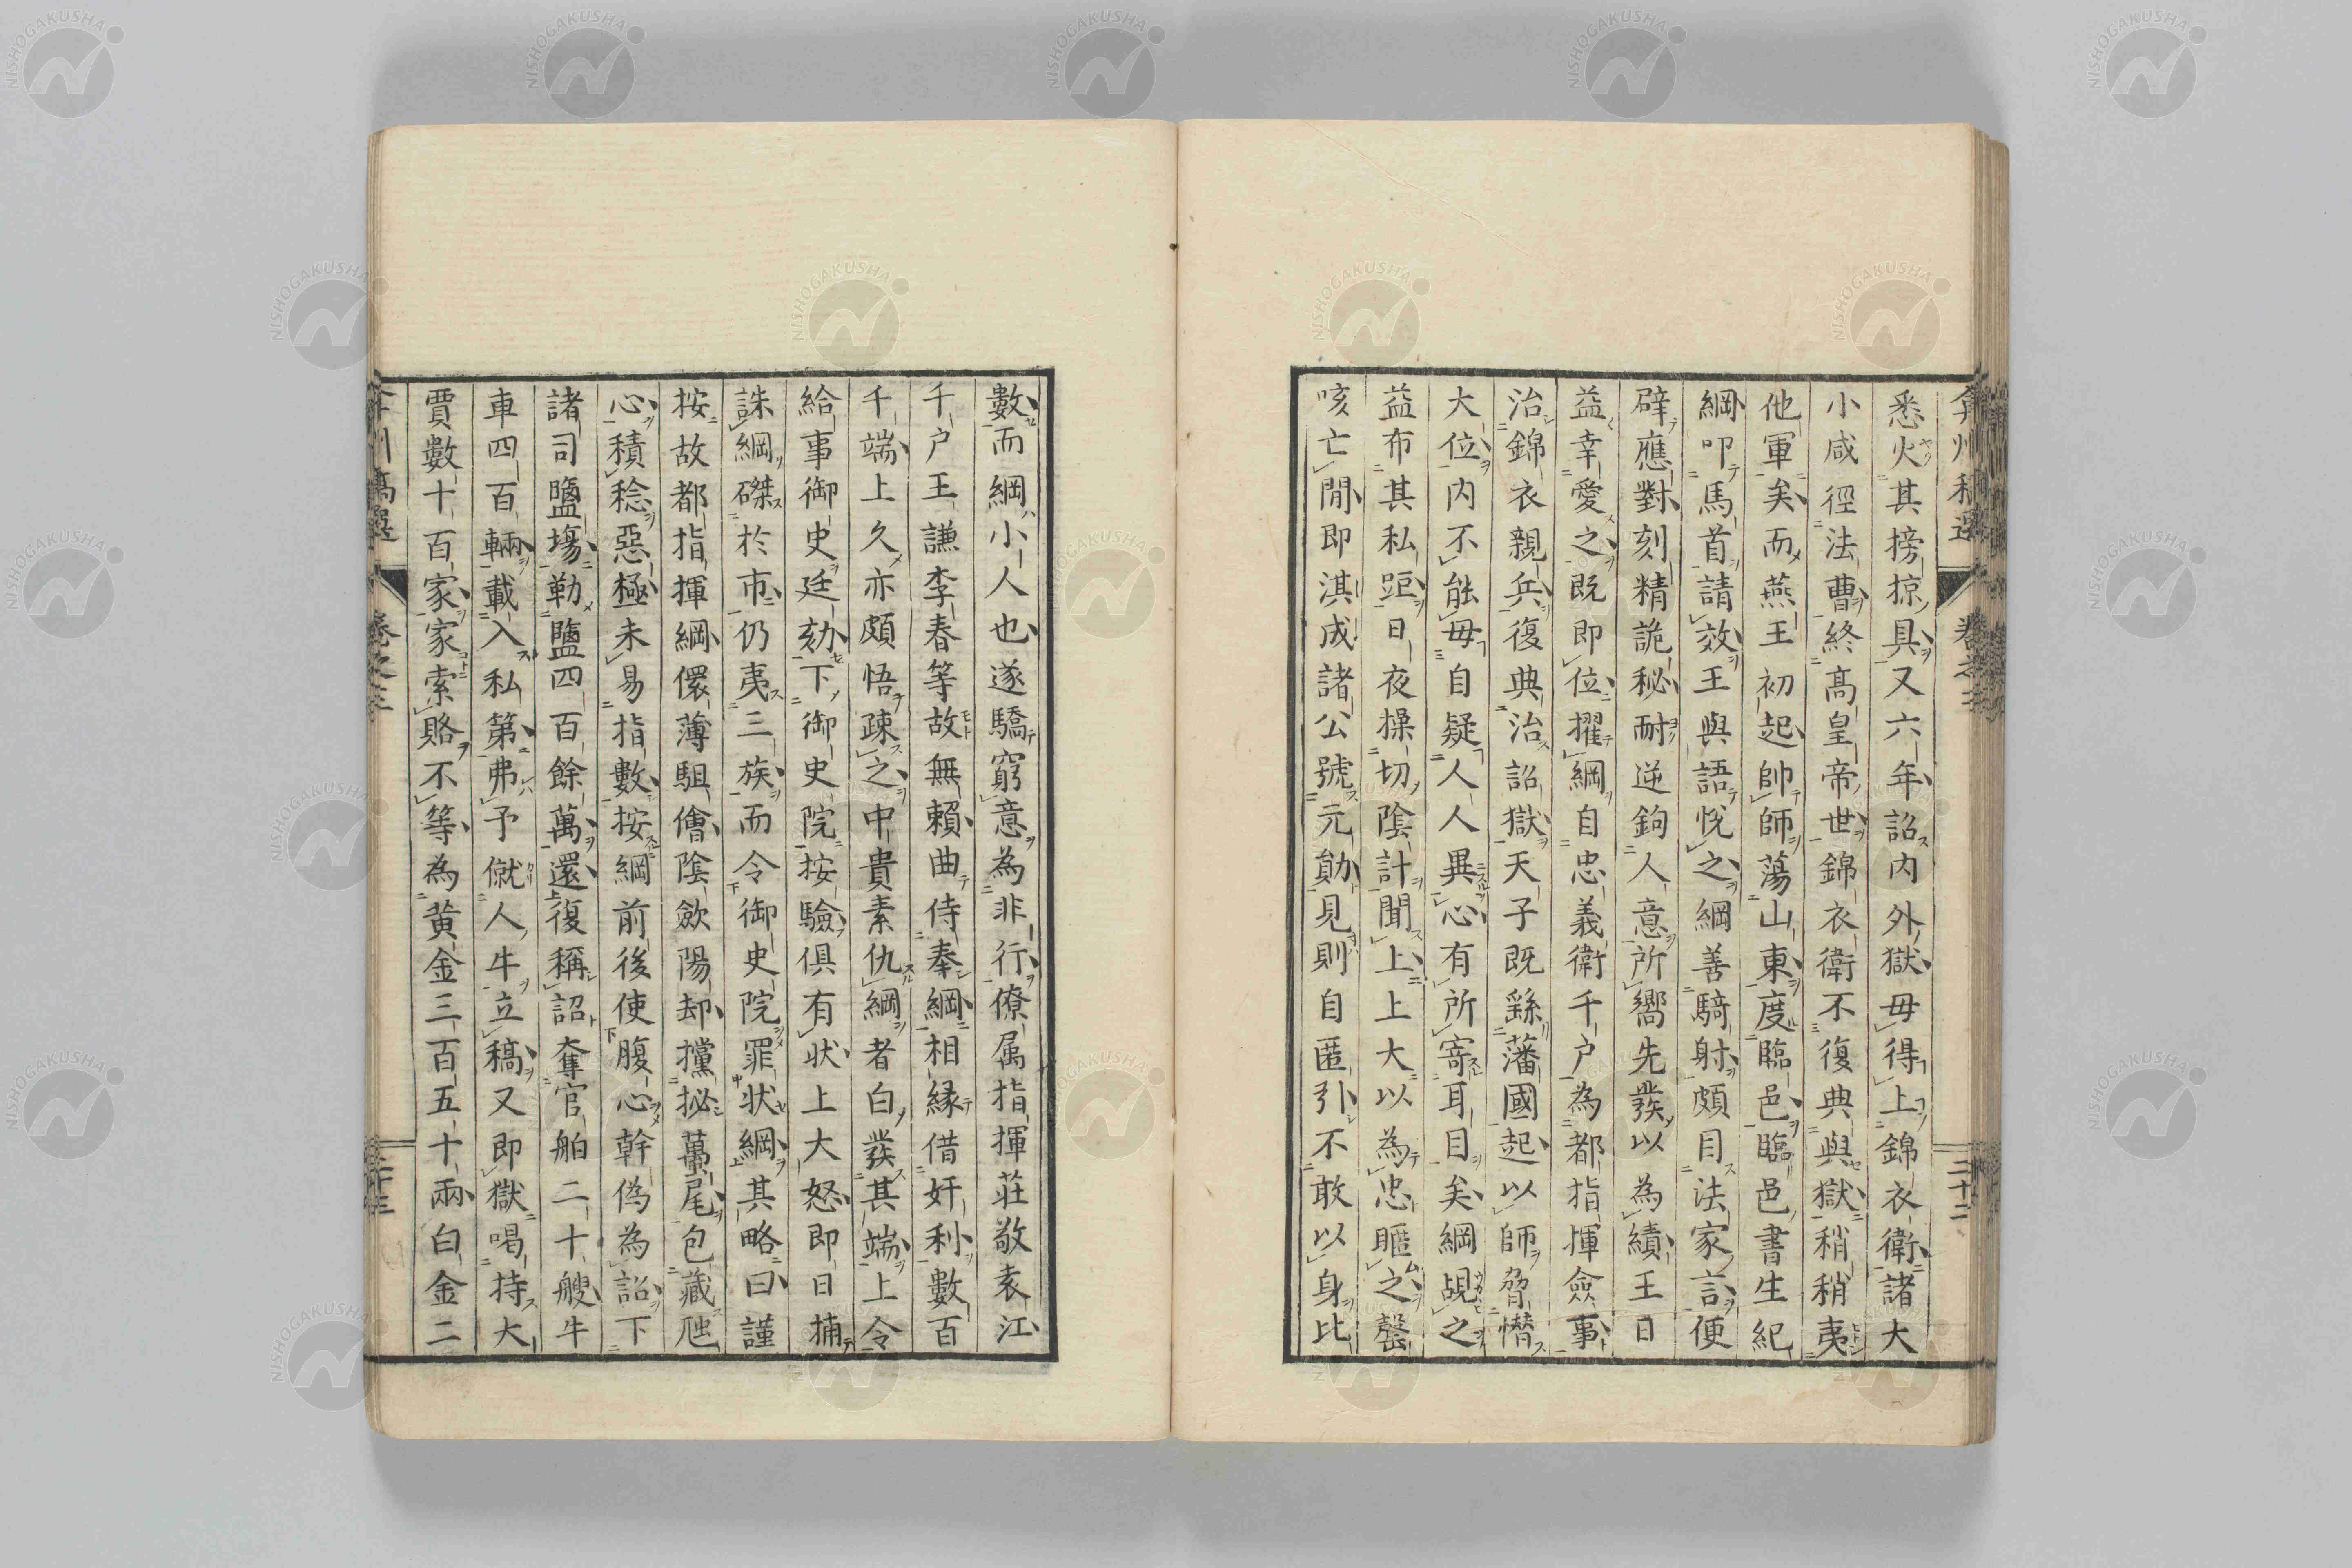 悉火其搒掠具又六年詔内外獄毋得上錦衣衛諸大
小咸徑法曹終髙皇帝世錦衣衛不復典與獄稍稍夷
他軍矣而燕王初起帥師蕩山東度臨邑臨邑書生紀
綱叩馬首請效王與語悅之綱善騎射頗目法家言便
辟應對刻精詭秘耐逆鉤人意所嚮先發以為績王日
益幸愛之既即位擢綱自忠義衛千户為都指揮僉事
治錦衣親兵復典治詔獄天子既繇藩國起以師脅慴
大位内不能毋自疑人人異心有所寄耳目矣綱覘之
益布其私距日夜操切陰計聞上上大以為忠暱之罄
咳亡閒即淇成諸公號元勛見則自匿引不敢以身比
數而綱小人也遂驕窮意為非行僚属指揮莊敬袁江
千户王謙李春等故無賴曲侍奉綱相緣借奸利數百
千端上久亦頗悟疎之中貴素仇綱者白發其端上令
給事御史廷劾下御史院按驗俱有状上大怒即日捕
誅綱磔於市仍夷三族而令御史院罪状綱其略曰謹
按故都指揮綱儇薄駔儈陰歛陽却攩挱蠆尾包藏虺
心積稔惡極未易指數按綱前後使腹心幹偽為詔下
諸司鹽場勒鹽四百餘萬還復稱詔奪官舶二十艘牛
車四百輛載入私第弗予僦人牛立稿又即獄喝持大
賈數十百家家索賂不等為黄金三百五十兩白金二
卷之三